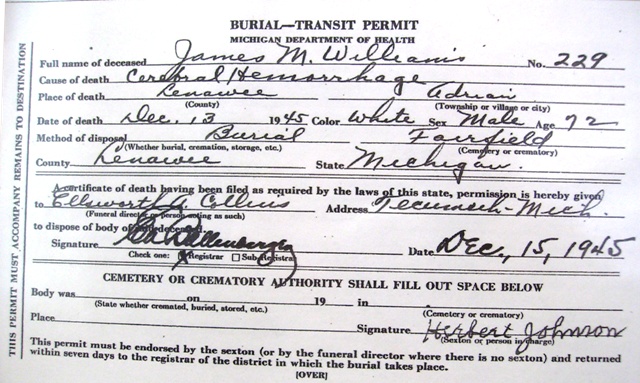 BURIAL—TRANSIT PERMIT
MICHIGAN DEPARTMENT OF HEALTH
Full name of deceased James M. Williams No. 229
Cause of death Cerebral Hemorrhage
Place of death Lenawee Adrian
(County) (Township or village or city)
Date of death Dec. 13 1945 Color White Sex Male Age 72
Method of disposal Burial Fairfield
(Whether burial, cremation, storage, etc.) (Cemetery or crematory)
County Lenawee State Michigan.
A certificate of death having been filed as required by the laws of this state, permission is hereby given
to Ellsworth A. Collins Address Tecumseh-Mich.
(Funeral director or person acting as such)
to dispose of body of deceased.
Signature
Date Dec. 15, 1945
Check one: Registrar Sub-Registrar
CEMETERY OR CREMATORY AUTHORITY SHALL FILL OUT SPACE BELOW
Body was on 19 in
(State whether cremated, buried, stored, etc.) (Cemetery or crematory)
Place Signature Herbert Johnson
(Sexton or person in charge)
This permit must be endorsed by the sexton (or by the funeral director where there is no sexton) and returned
within seven days to the registrar of the district in which the burial takes place.
[OVER]
THIS PERMIT MUST ACCOMPANY REMAINS TO DESTINATION